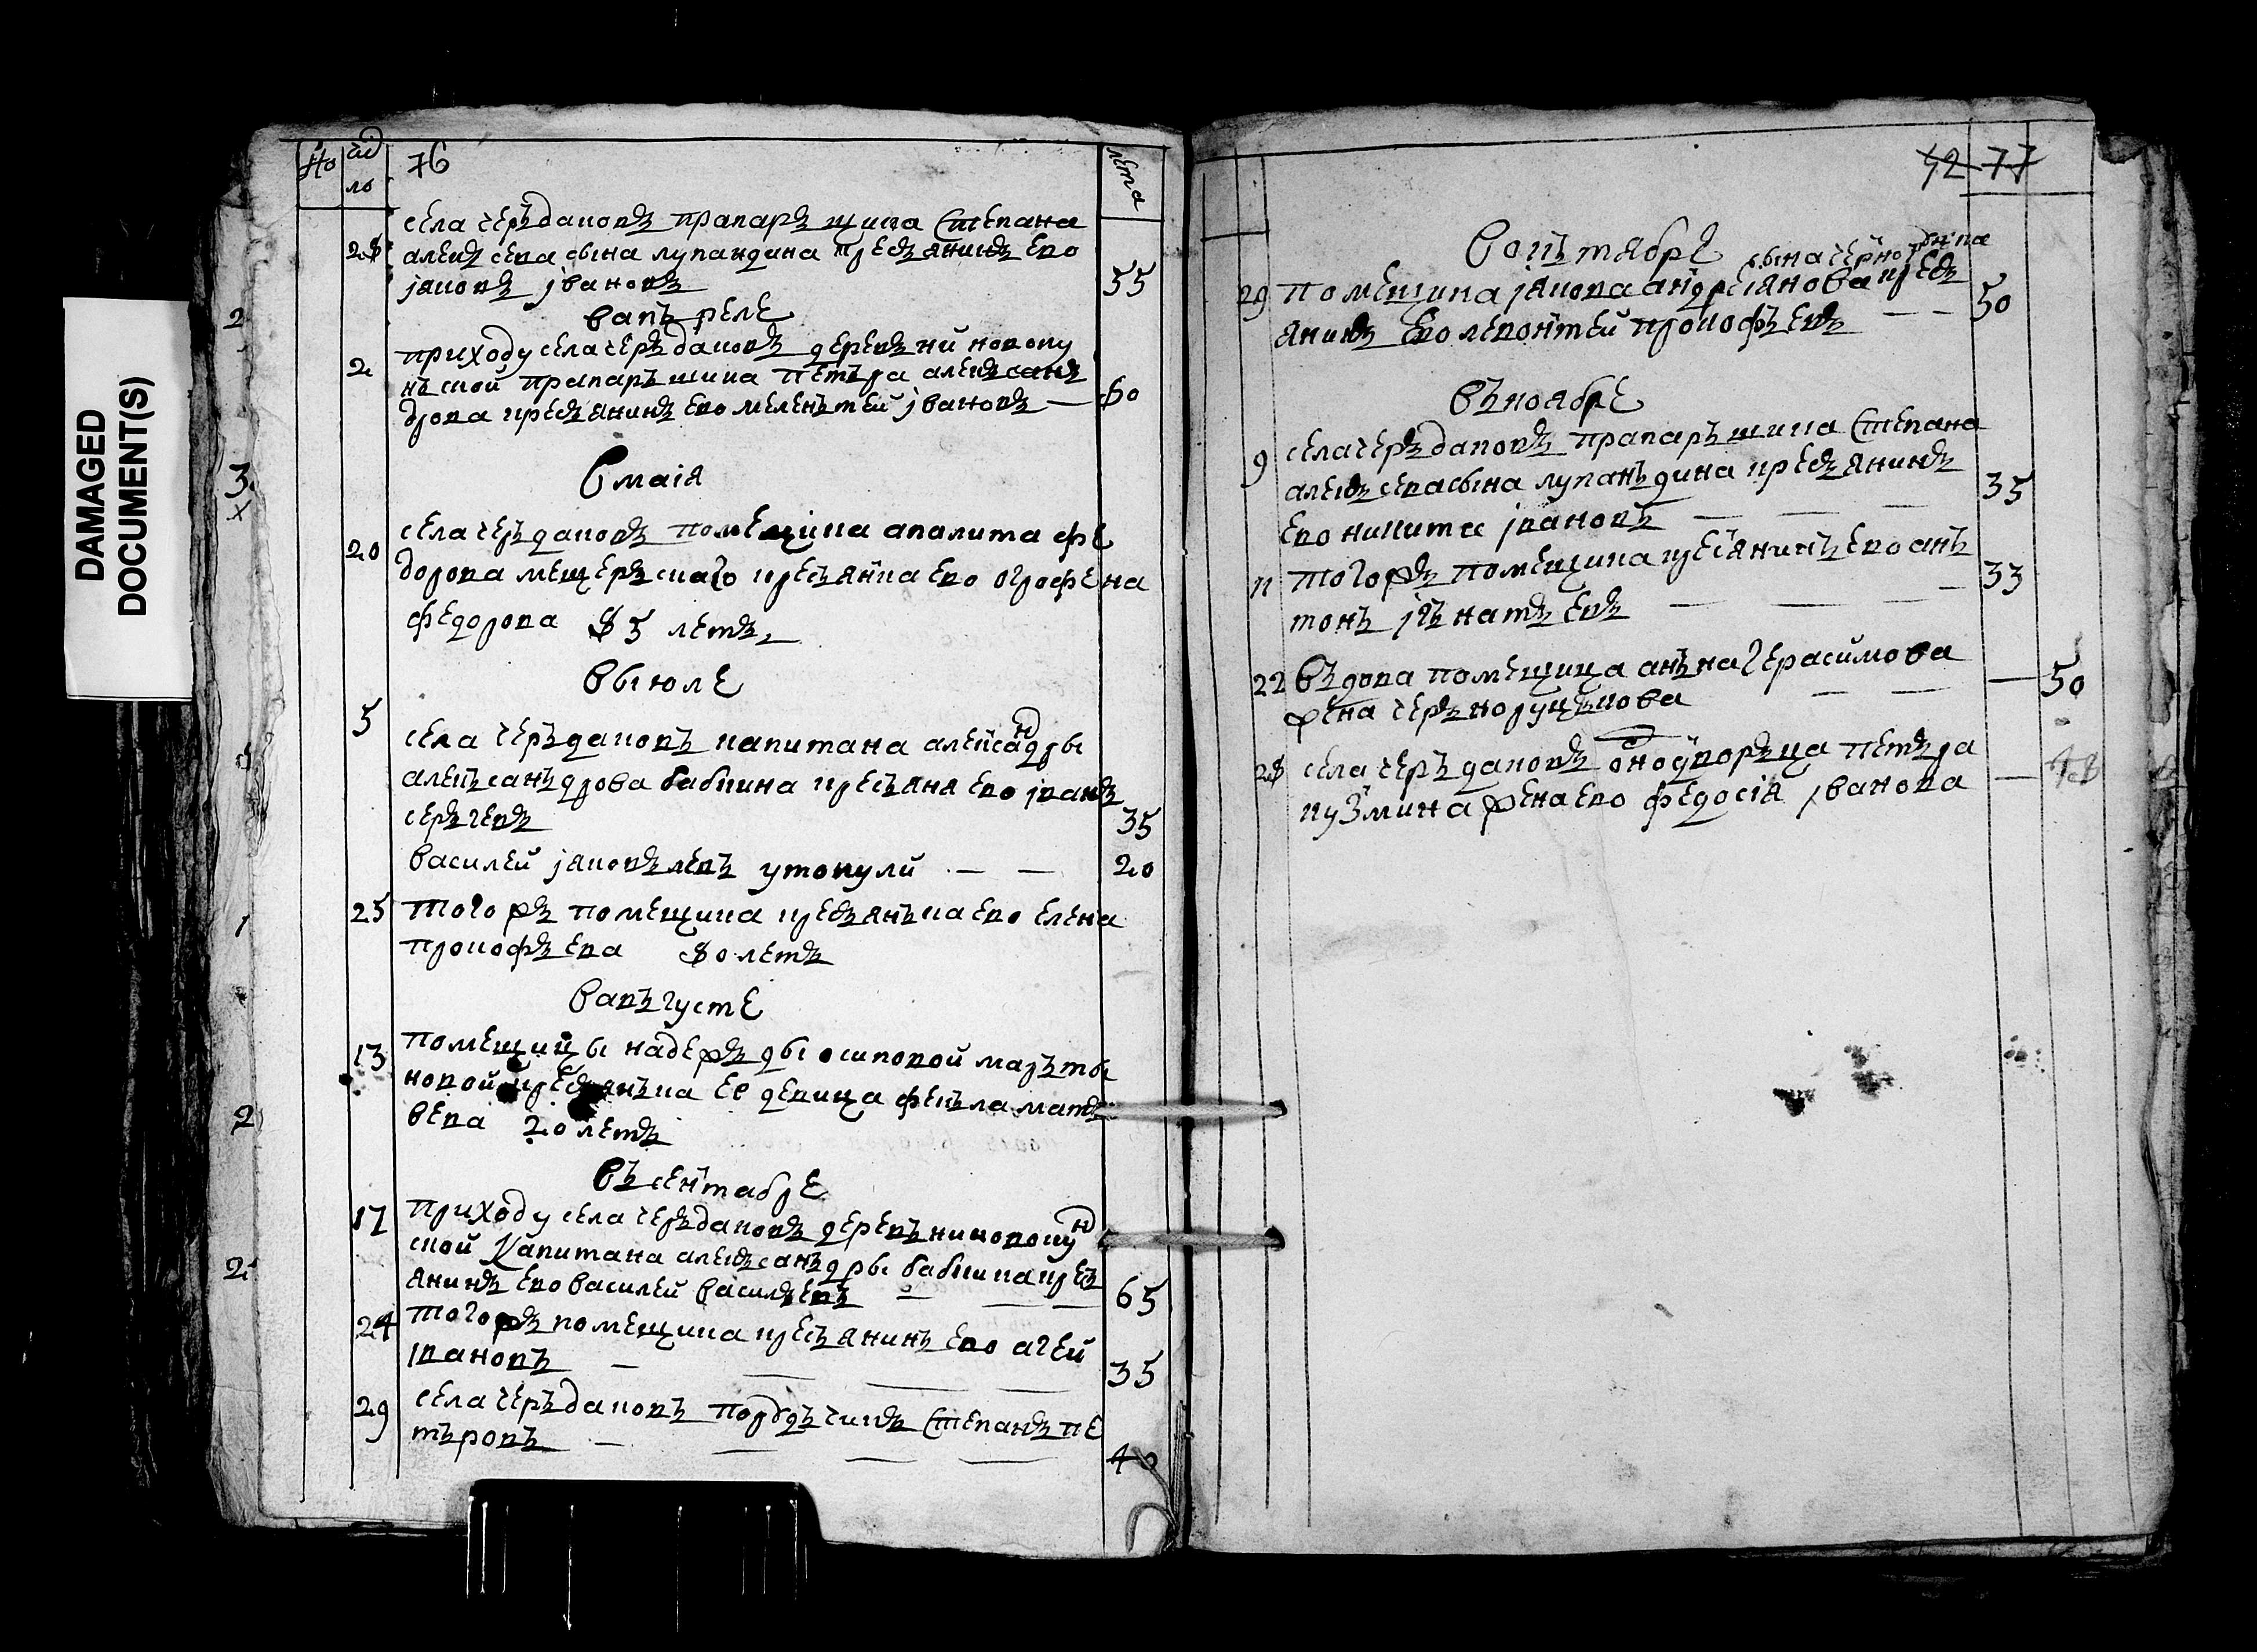 DAMAGED
DOCUMENT(S)
76
лета
28
села черъдаковъ прапаръщика Степана
алеѯѣева сына лупандина кресъянинъ ево
яковъ ивановъ 55
вапъреле
2 приходу села черъдаковъ деревъни
ской прапаръщика петъра алексанъ
дрова кресъянинъ ево мелентъей ивановъ — 60
Вмаія
20 села черъдаковъ помещика аполита фе
дорова мещеръскаго кресъянка ево огрофена
федорова 85 летъ
Выюле
5 села черъдаковъ капитана алеиксандры
алекъсанъдрова бабкина кресъяня ево иванъ
серъгевъ 35
василей яковълевъ утонули — — 20
25 тогожъ помещика кресъянъка ево елена
прокофъева 80 летъ
Вавъгусте
13 помещицы надежъды осиповой маръты
новой кресъянъка ее девица фекъла матъ
вева 20 летъ
Въсентабре
17 приходу села черъдаковъ деревъни
ской Капитана алекъсанъдры бабкина кресъ
янинъ ево василей василъевъ — — — 65
24 тогожъ помещика кресъянинъ ево агей
ивановъ — — — — 35
29 села черъдаковъ Степанъ пе
търовъ — — — — 40
42 77
Вокътябре
сына черно
29 помещика якова андреянова кресъ
янинъ ево леонтей прокофъевъ — — 50
Въноябре
9 села черъдаковъ прапаръщика Степана
алекъсева сына лупанъдина кресъянинъ
ево никита ивановъ — — — 35
11 тогожъ помещика кресъянинъ ево анъ
тонъ игънатъевъ — — — — 33
22 Въдова помещица анъна герасимова
жена черънолуцъкова — — — 50
28 села черъдаковъ онодворъца петъра
кузмина жена ево федосія иванова — 48